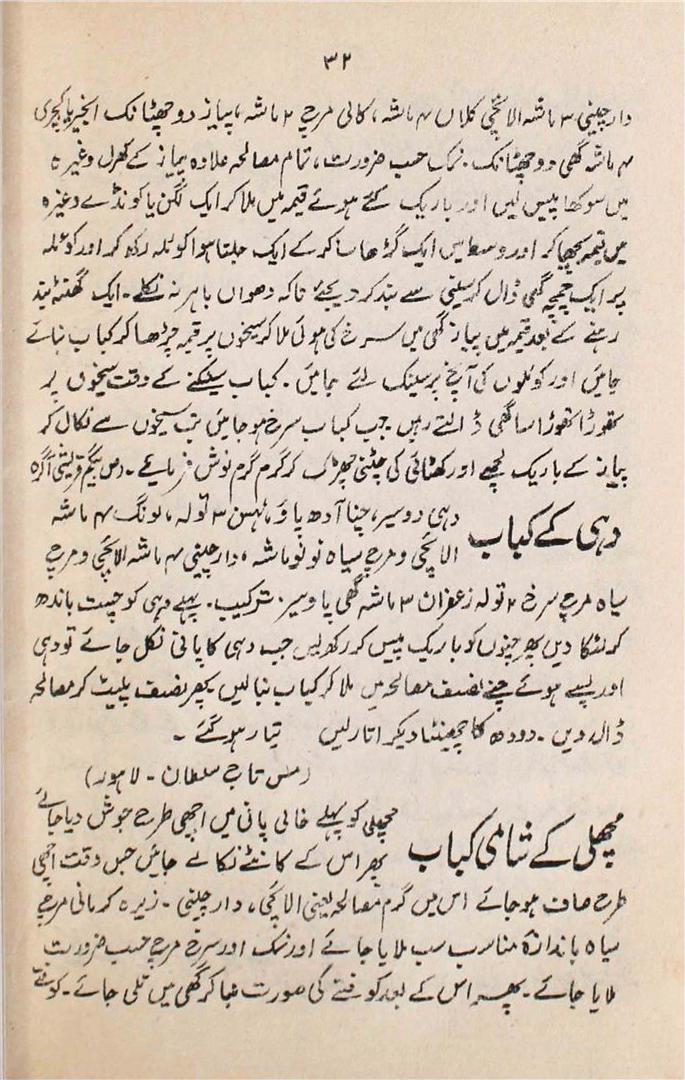 ۳۲
دارچینی ۳ ماشہ الائچی کلاں ۴ ماشہ، کالی مرچ ۲ ماشہ، پیاز دو چھٹانک انجیر یا کچری
۴ ماشہ گھی دو چھٹانک۔ نمک حسب ضرورت، تمام مصالحہ علاوہ پیاز کے کھرل وغیرہ
میں سوکھا پیس لیں اور باریک کٹے ہوئے قیمہ میں ملا کر ایک لگن یا کونڈے وغیرہ
میں قیمہ بچھا کر اور وسط میں ایک گڑھا سا کر کے ایک جلتا ہوا کوئلہ رکھ کر اور کوئلہ
پر ایک چمچہ گھی ڈال کر سینی سے بند کر دیجئے تاکہ دھواں باہر نہ نکلے۔ ایک گھنٹہ بند
رہنے کے بعد قیمہ میں پیاز گھی میں سرخ کی ہوئی ملا کر سیخوں پر قیمہ چڑھا کر کباب بنائے
جائیں اور کوئلوں کی آنچ پر سینک لئے جائیں۔ کباب سینکنے کے وقت سیخوں پر
تھوڑا تھوڑا سا گھی ڈالتے رہیں جب کباب سرخ ہو جائیں تب سیخوں سے نکال کر
پیاز کے باریک لچھے اور کھٹائی کی چٹنی چھڑک کر گرم گرم نوش فرمائیے۔ (مس بیگم قریشی آگرہ
دہی کے کباب
دہی دو سیر، چنا آدھ پاؤ، لہسن ۳ تولہ، لونگ ۴ ماشہ
الائچی و مرچ سیاہ نو نو ماشہ، دارچینی ۴ ماشہ الائچی و مرچ
سیاہ مرچ سرخ ۲ تولہ زعفران ۳ ماشہ گھی پاؤ سیر۔ ترکیب۔ پہلے دہی کو چست باندھ
کر لٹکا دیں پھر چنوں کو باریک پیس کر رکھ لیں جب دہی کا پانی نکل جائے تو دہی
اور پسے ہوئے چنے نصف مصالحہ میں ملا کر کباب بنا لیں پھر نصف پلیٹ کر مصالحہ
ڈال دیں۔ دودھ کا چھینٹا دیکر اتار لیں تیار ہو گئے۔
(مس تاج سلطان۔ لاہور)
مچھلی کے شامی کباب
مچھلی کو پہلے خالی پانی میں اچھی طرح جوش دیا جائے
پھر اس کے کانٹے نکالے جائیں جس وقت اچھی
طرح صاف ہو جائے اس میں گرم مصالحہ یعنی الائچی، دارچینی۔ زیرہ کرمانی مرچ
سیاہ باندازۂ مناسب سب ملایا جائے اور نمک اور سرخ مرچ حسب ضرورت
ملایا جائے۔ پھر اس کے بعد کوفتے کی صورت بنا کر گھی میں تلی جائے۔ کوفتے